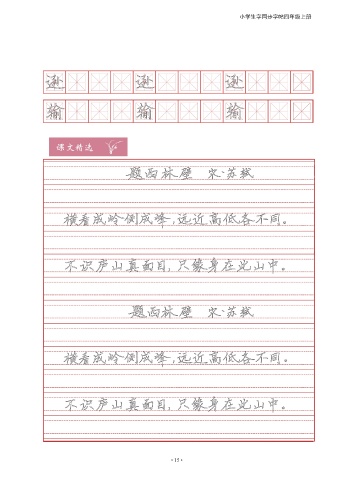 小学生字同步字帖四年级上册
逊 逊 逊
输 输 输
课文精选
题西林壁 宋·苏轼
横看成岭侧成峰,远近高低各不同。
不识庐山真面目,只缘身在此山中。
题西林壁 宋·苏轼
横看成岭侧成峰,远近高低各不同。
不识庐山真面目,只缘身在此山中。